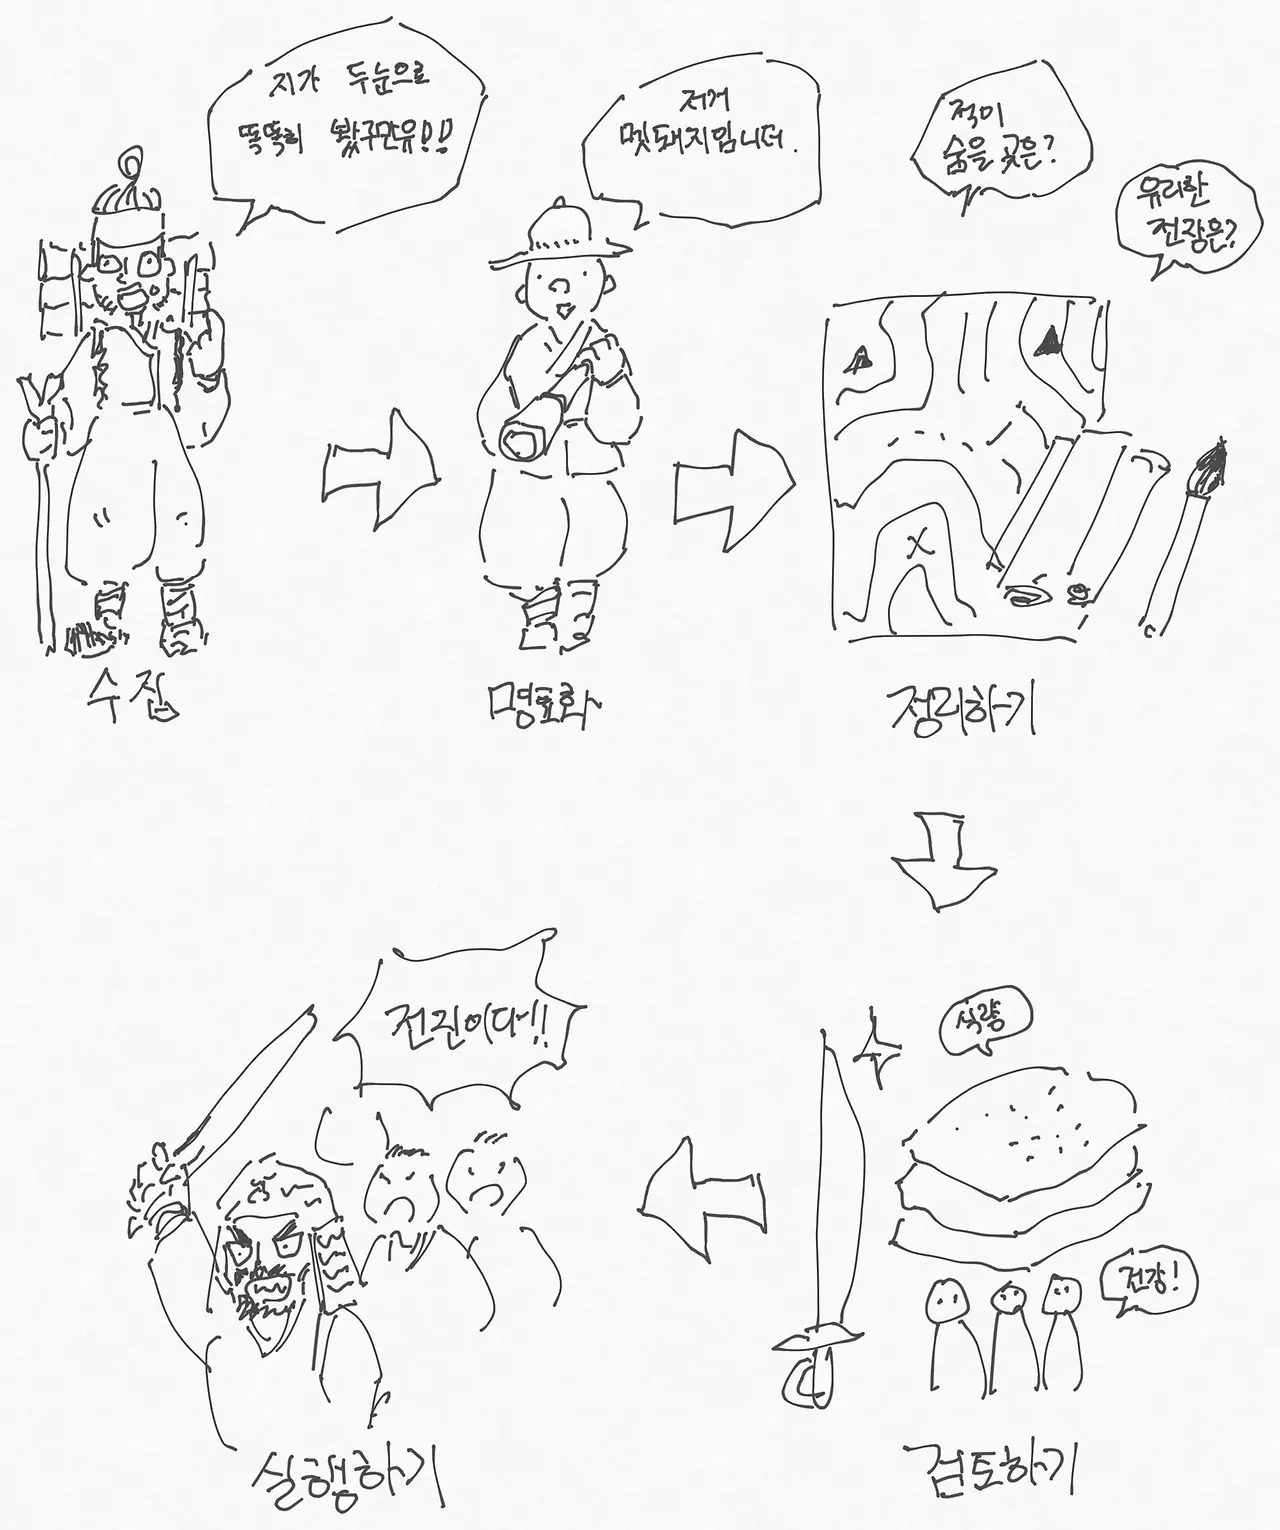 지가 두눈으로
똑똑히 봤구만유!!
저거
멧돼지입니더.
적이
숨을 곳은?
유리한
전장은?
수집
명료화
정리하기
전진이다!!
식량
건강!
실행하기
검토하기